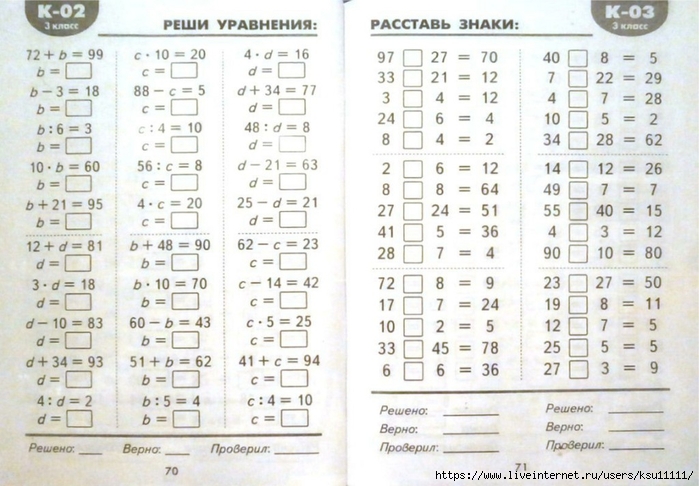 К-02
3 класс
РЕШИ УРАВНЕНИЯ:
72 + b = 99 c · 10 = 20 4 · d = 16
b = c = d =
b − 3 = 18 88 − c = 5 d + 34 = 77
b = c = d =
b : 6 = 3 c : 4 = 10 48 : d = 8
b = c = d =
10 · b = 60 56 : c = 8 d − 21 = 63
b = c = d =
b + 21 = 95 4 · c = 20 25 − d = 21
b = c = d =
12 + d = 81 b + 48 = 90 62 − c = 23
d = b = c =
3 · d = 18 b · 10 = 70 c − 14 = 42
d = b = c =
d − 10 = 83 60 − b = 43 c · 5 = 25
d = b = c =
d + 34 = 93 51 + b = 62 41 + c = 94
d = b = c =
4 : d = 2 b : 5 = 4 c : 4 = 10
d = b = c =
Решено: Верно: Проверил:
70
РАССТАВЬ ЗНАКИ:
К-03
3 класс
97 27 = 70 40 8 = 5
33 21 = 12 7 22 = 29
3 4 = 12 4 7 = 28
24 6 = 4 10 5 = 2
8 4 = 2 34 28 = 62
2 6 = 12 14 12 = 26
8 8 = 64 49 7 = 7
27 24 = 51 55 40 = 15
41 5 = 36 4 3 = 12
28 7 = 4 90 10 = 80
72 8 = 9 23 27 = 50
17 7 = 24 19 8 = 11
10 2 = 5 12 7 = 5
33 45 = 78 25 5 = 5
6 6 = 36 27 3 = 9
Решено: Решено:
Верно: Верно:
Проверил: Проверил:
71
https://www.liveinternet.ru/users/ksu11111/